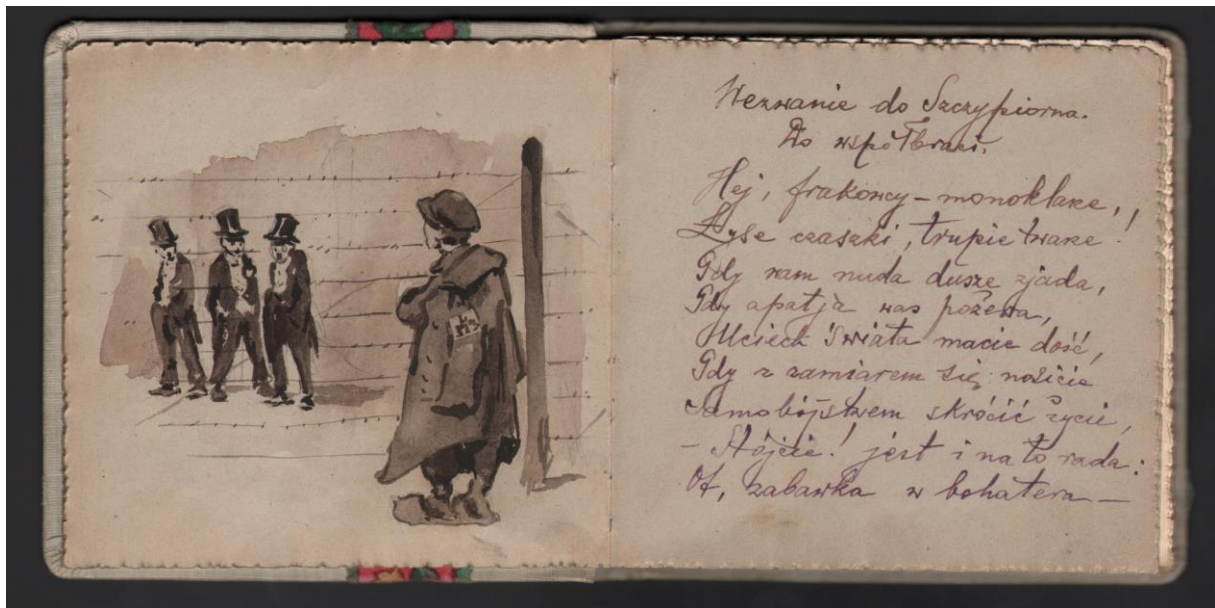 Wezwanie do Szczypiorna.
Do współbraci.
Hej, frakowcy – monoklarze,,
Łyse czaszki, trupie twarze!
Gdy wam nuda duszę zjada,
Gdy apatja was pożera,
Uciech świata macie dość,
Gdy z zamiarem się nosicie
Samobójstwem skrócić życie,
– Stójcie! jest i na to rada:
Ot, zabawka w bohatera –